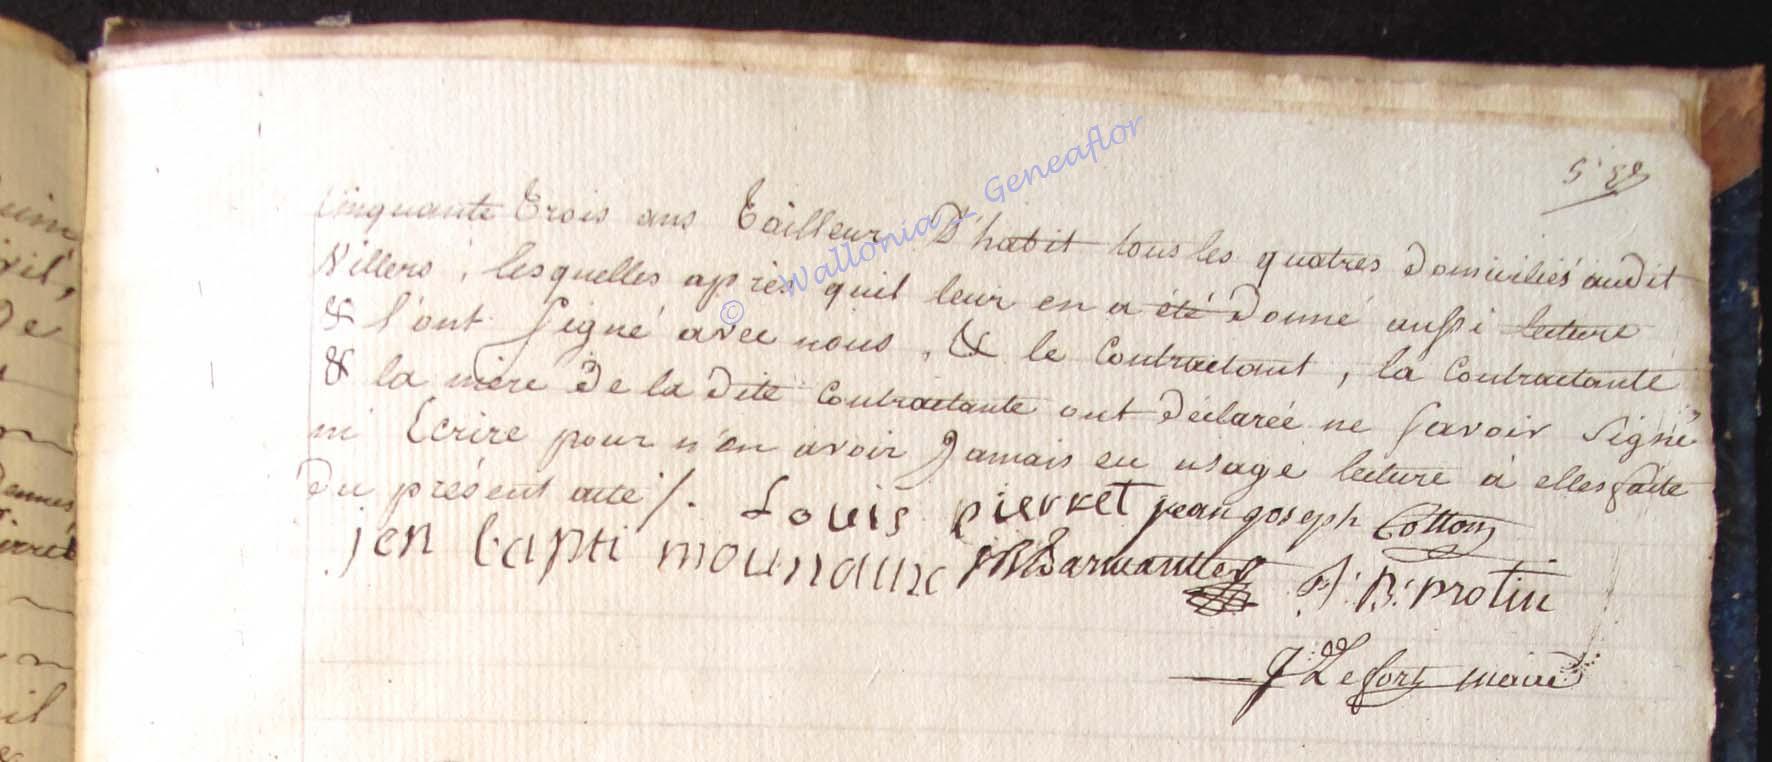 Cinquante trois ans tailleur D'habit tous les quatres domiciliés audit
Villers, lesquelles après quil leur en a été donné aussi lecture
& l'ont signé avec nous, & le contractant, la contractante
& la mère de la dite contractante ont déclarée ne savoir signé
ni Ecrire pour n'en avoir Jamais eu usage lecture à elles faite
du présent acte /. Louis pierret jean joseph Cotton
jen bapti mounaux J: B: protin
Lefort maire
© Wallonia - Geneaflor